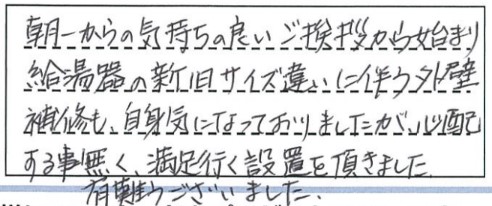 朝一からの気持ちの良いご挨拶から始まり
給湯器の新旧サイズ違いに伴う外壁
補修も、自身気になっておりましたが、心配
する事無く、満足行く設置を頂きました
有難うございました、